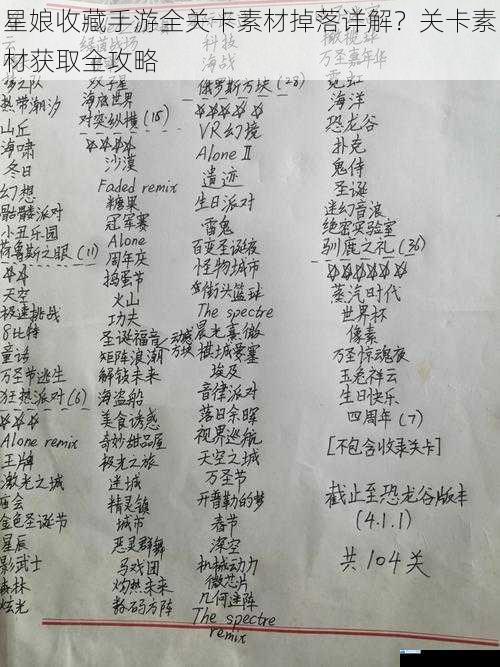 星娘收藏手游全关卡素材掉落详解？关卡素
材获取全攻略
梦之队
热带潮汐
山丘
海啸
冬日
幻想
骷髅派对
小丑乐园
荷鲁斯之眼(11)
☆☆
天空
极速挑战
8比特
童话
万圣节逃生
狂热派对(6)
☆☆☆
Alone remix
王牌
激光之城
庙会
金色圣诞节
星辰
影武士
森林
炫光
双子星
海底世界
对奕纵横(18)
☆☆☆☆
沙漠
Faded remix
糖果
冠军赛
Alone
周年庆
捣蛋节
火山
功夫
圣诞福音
矩阵浪潮
解锁未来
海盗船
美食诱惑
奇妙甜品屋
极光之旅
迷城
精灵镇
城市
恶灵群舞
马戏团
灼热未来
数码方阵
科技
海战
俄罗斯方块(28)
☆☆☆☆☆
VR幻境
Alone Ⅱ
遗迹
生日派对
雷鬼
百变圣诞夜
怪物城市
街头篮球
The spectre
晨光熹微
棋城要塞
埃及
音律派对
落日余晖
视界巡航
天空之城
万圣节
开普勒的梦
春节
深空
机械动力
微芯片
几何迷阵
The spectre
remix
橄榄球
万圣嘉年华
霓虹
海洋
恐龙谷
扑克
鬼侍
圣诞
迷幻音浪
绝密实验室
驯鹿之礼(36)
☆☆☆☆☆☆
蒸汽时代
世界杯
像素
万圣惊魂夜
玉兔祥云
生日快乐
四周年(7)
[不包含收录关卡]
截止至恐龙谷版本
(4.1.1)
共104关